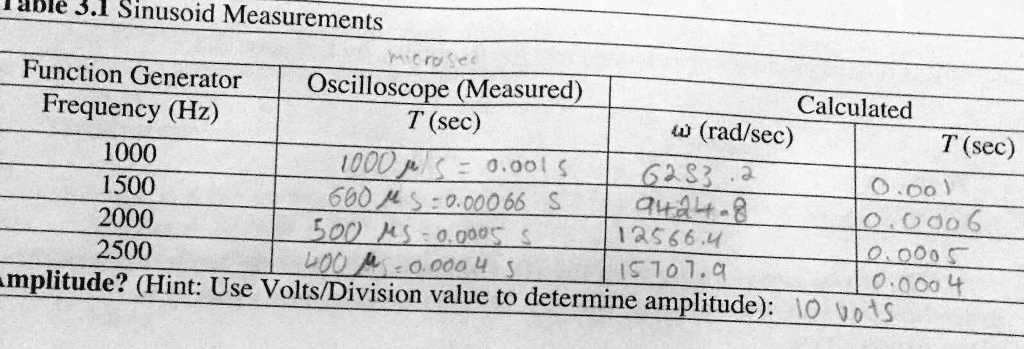 Table 3.1 Sinusoid Measurements
microsec
Function Generator Frequency (Hz) Oscilloscope (Measured) T (sec) Calculated
ω (rad/sec) T (sec)
1000 1000 μs = 0.001 s 6283.2 0.001
1500 660 μs = 0.00066 s 9424.8 0.0006
2000 500 μs = 0.0005 s 12566.4 0.0005
2500 400 μs = 0.0004 s 15707.9 0.0004
Amplitude? (Hint: Use Volts/Division value to determine amplitude): 10 vots